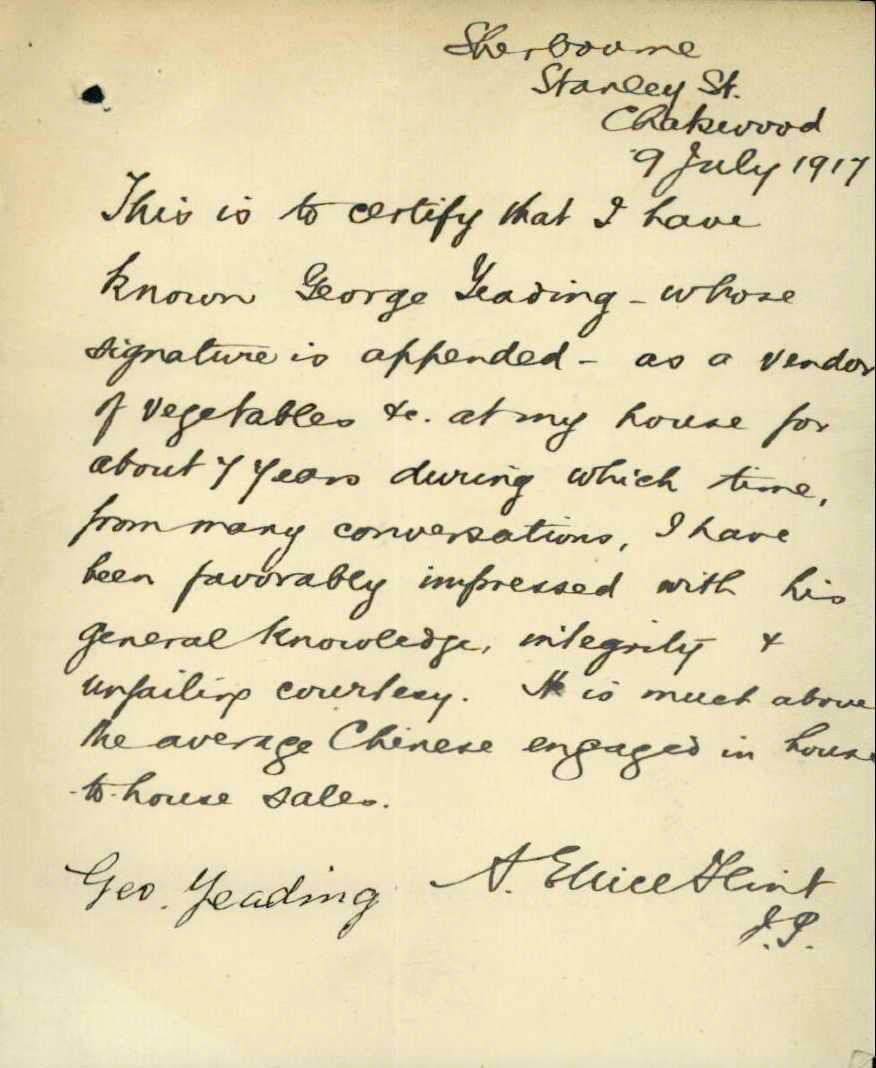 Sherbourne
Stanley St.
Chatswood
9 July 1917
This is to certify that I have
known George Yeading - whose
signature is appended - as a vendor
of vegetables &c. at my house for
about 7 years during which time,
from many conversations, I have
been favorably impressed with his
general knowledge, integrity &
unfailing courtesy. He is much above
the average Chinese engaged in house
-to-house sales.
Geo. Yeading A. Ellice Flint
J.P.